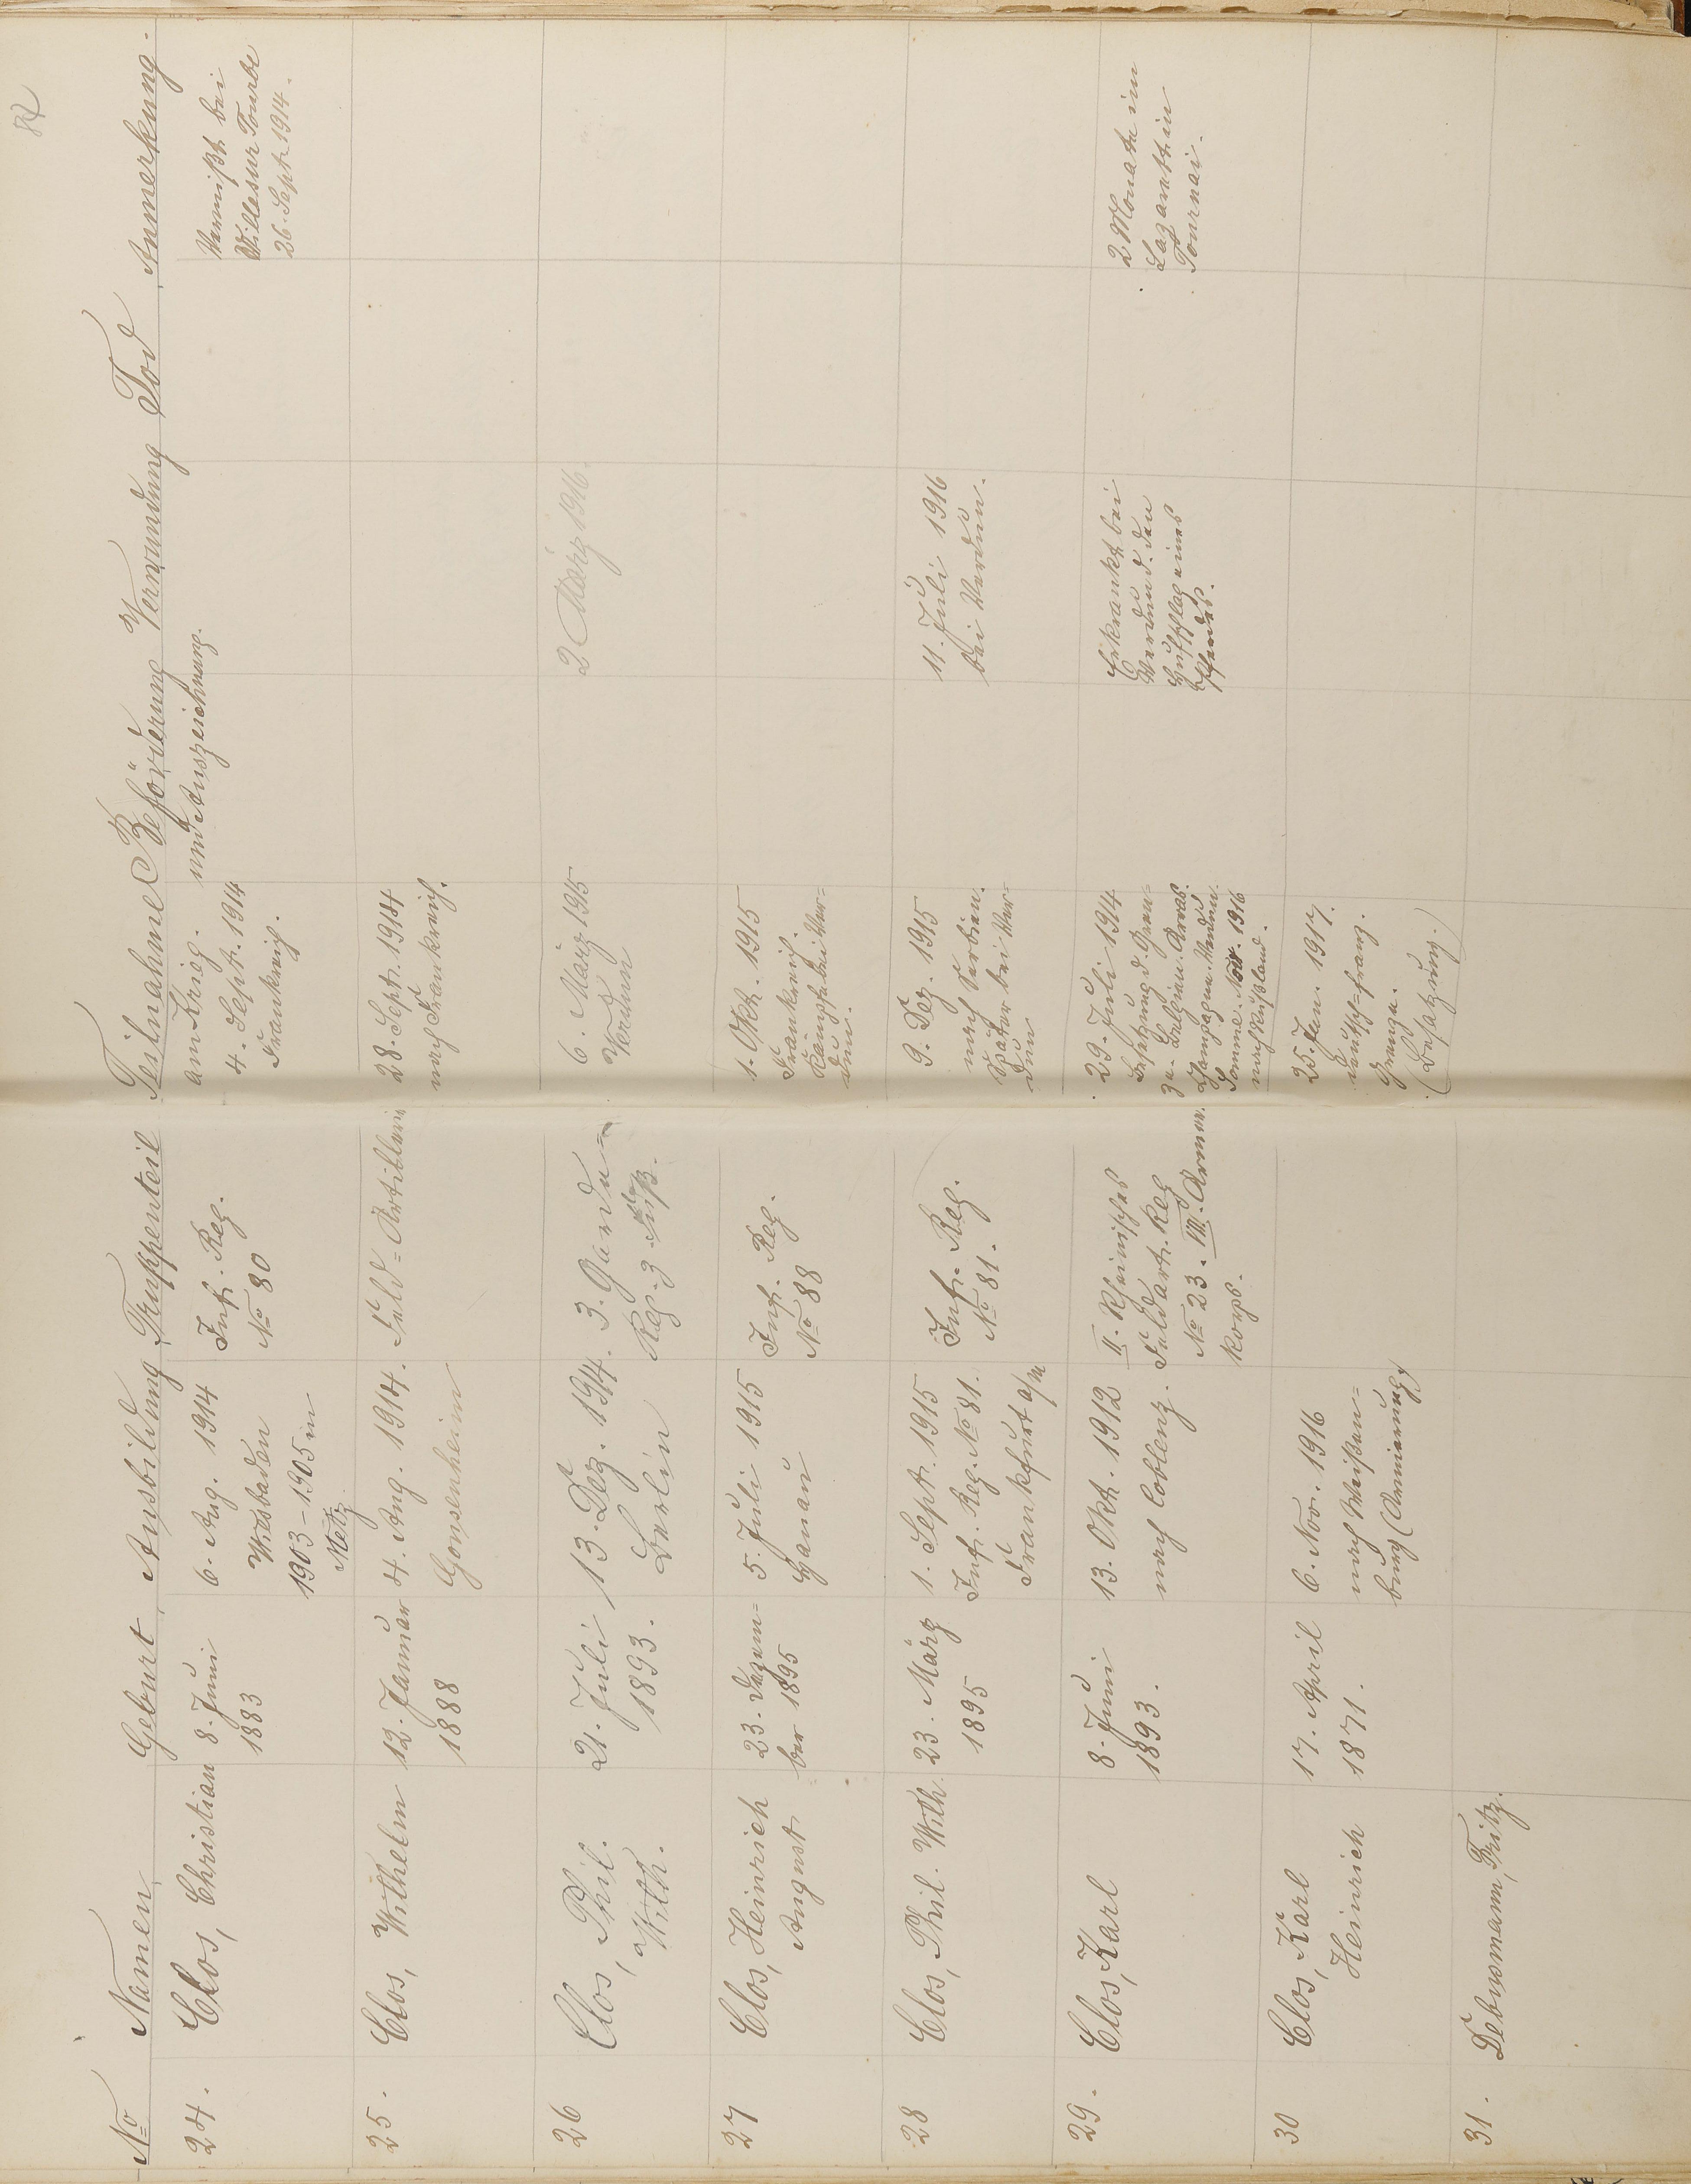 84
No Namen Geburt Ausbildung Truppenteil Teilnahme Beförderung Verwundung Tod Anmerkung.
am Krieg. und Auszeichnung.
24. Clos, Christian 8. Juni 6. Aug. 1914 Inf. Reg. 4. Sept. 1914 Vermißt bei
1883 Wiesbaden No 80 Frankreich. Ville sur Tourbe
1903-1905 in 26. Sept. 1914.
Metz.
25. Clos, Wilhelm 12. Januar 4. Aug. 1914. Feld=Artillerie 28. Sept. 1914
1888 Gonsenheim nach Frankreich.
26 Clos, Phil. 21. Juli 13. Dez. 1914. 3. Garde= 6. März 1915 2 März 1916.
Wilh. 1893. Berlin Reg. z. Fuß. Verdun
27 Clos, Heinrich 23. Dezem= 5. Juli 1915 Inf. Reg. 1. Okt. 1915
August ber 1895 Hanau No 88 Frankreich.
Kämpfe bei Ver=
dun.
28 Clos, Phil. Wilh. 23. März 1. Sept. 1915 Inf. Reg. 9. Dez. 1915 11. Juli 1916
1895 Inf. Reg. No 81. No 81. nach Serbien. bei Verdun.
Frankfurt a/M Später bei Ver=
dun
29. Clos, Karl 8. Juni 13. Okt. 1912 II. Rheinisches 29. Juli 1914 Erkrankt bei 2 Monate im
1893. nach Coblenz. Feldart. Reg Besetzung d. Gren= Verdun d. den Lazarett in
No 23. VIII. Armee. ze. Belgien. Arras. Hufschlag eines Tournai.
korps. Champagne. Verdun. Pferdes.
Somme. Nov. 1916
nach Rußland.
30 Clos, Karl 17. April 6. Nov. 1916 25. Jan. 1917.
Heinrich 1871. nach Weißen= deutsch=franz.
burg (Armierung) Grenze.
(Besatzung.)
31. Debusmann, Fritz.